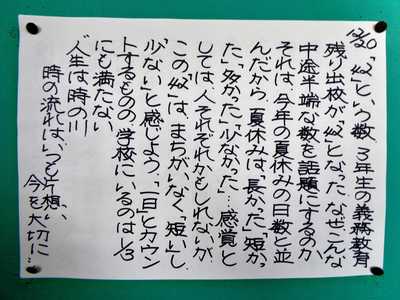 12/20 「42」という数。3年生の義務教育
残り出校が「42」となった。なぜこんな
中途半端な数を話題にするのか。
それは、今年の夏休みの日数と並
んだから。夏休みは、「長かった」「短かっ
た」「多かった」「少なかった」…感覚と
しては、人それぞれかもしれないが、
この「42」は、まちがいなく「短い」し、
「少ない」と感じよう。「一日」とカウン
トするものの、学校にいるのは1/3
にも満たない。
“人生は時の川
時の流れは、いつも片想い”
今を大切に…